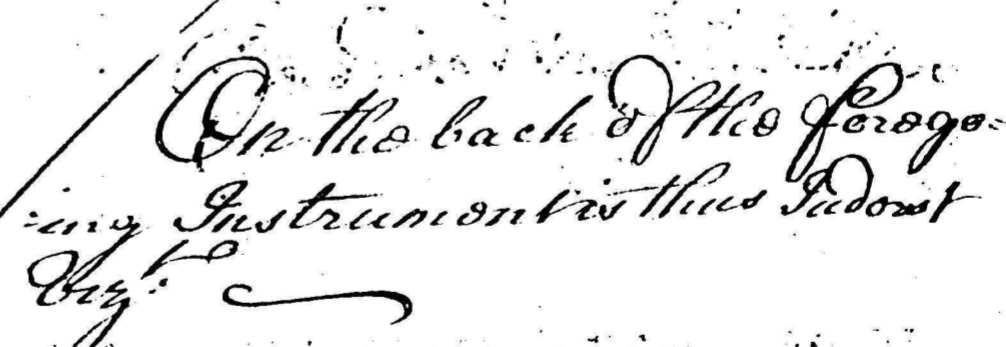 On the back of the forego=
:ing Instrument is thus Indorst
Vizt.